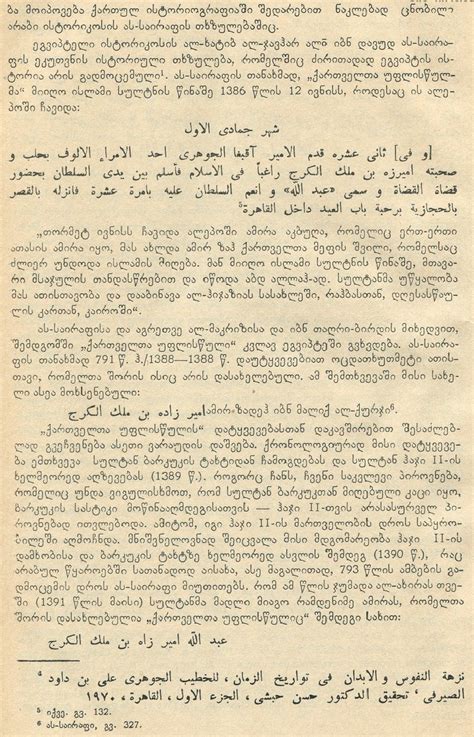 ბა მოიპოვება ქართულ ისტორიოგრაფიაში შედარებით ნაკლებად ცნობილ
არაბი ისტორიკოსის ას-საირაფის თხზულებაშიც.
ეგვიპტელი ისტორიკოსის ალ-ხატიბ ალ-ჯავჰარ ალი იბნ დავუდ ას-საირა-
ფის ეკუთვნის ისტორიული თხზულება, რომელშიც ძირითადად ეგვიპტის ის-
ტორია არის გადმოცემული⁴. ას-საირაფის თანახმად, „ქართველთა უფლისწულ-
მა“ მიიღო ისლამი სულტნის წინაშე 1386 წლის 12 ივნისს, როდესაც ის ალე-
პოში ჩავიდა:
شهر جمادى الاول
[و فى] ثانى عشره قدم الامير آقبغا الجوهرى احد الامراء الالوف بحلب و
صحبته اميرزه بن ملك الكرج راغباً فى الاسلام فأسلم بين يدى السلطان بحضور
قضاة القضاة و سمى «عبد الله» و انعم السلطان عليه بامرة عشرة فانزله بالقصر
بالحجازية برحبة باب العيد داخل القاهرة⁵
„თორმეტ ივნისს ჩავიდა ალეპოში ამირა აკბუღა, რომელიც ერთ-ერთი
ათასის ამირა იყო, მას ახლდა ამირ ზაჰ ქართველთა მეფის შვილი, რომელსაც
ძლიერ უნდოდა ისლამის მიღება. მან მიიღო ისლამი სულტნის წინაშე, მთავა-
რი მსაჯულის თანდასწრებით და იწოდა აბდ ალლაჰ-ად. სულტანმა უწყალობა
მას ათისთავობა და დააბინავა ალ-ჰიჯაზიას სასახლეში, რაჰბასთან, დღესასწაუ-
ლის კართან, კაიროში“.
ას-საირაფისა და აგრეთვე ალ-მაკრიზისა და იბნ თაღრი-ბირდის მიხედვით,
შემდგომში „ქართველთა უფლისწული“ კვლავ ეგვიპტეში გვხვდება. ას-საირა-
ფის თანახმად 791 წ. ჰ./1388—1388 წ. დაუტყვევებიათ ოცდათხუთმეტი ათის-
თავი, რომელთა შორის ისიც არის დასახელებული. ამ შემთხვევაში მისი სახე-
ლი ასეა მოხსენებული:
امير زاده بن ملك الكرج ამირ-ზადეჰ იბნ მალიქ ალ-ქურჯი⁶.
„ქართველთა უფლისწულის“ დატყვევებასთან დაკავშირებით შესაძლებ-
ლად გვეჩვენება ასეთი ვარაუდის დაშვება. ქრონოლოგიურად მისი დატყვევე-
ბა ემთხვევა სულტან ბარკუკის ტახტიდან ჩამოგდებას და სულტან ჰაჯი II-ის
ხელმეორედ აღზევებას (1389 წ.). როგორც ჩანს, ჩვენი საკვლევი პიროვნება,
რომელიც უნდა ვიგულისხმოთ, რომ სულტან ბარკუკთან მიღებული კაცი იყო,
ბარკუკის სასტიკი მოწინააღმდეგისათვის — ჰაჯი II-თვის არასასურველ პი-
როვნებად ითვლებოდა. ამიტომ, იგი ჰაჯი II-ის მართველობის დროს საპყრო-
ბილეში აღმოჩნდა. მნიშვნელოვნად შეიცვალა მისი მდგომარეობა ჰაჯი II-ის
დამხობისა და ბარკუკის ტახტზე ხელმეორედ ასვლის შემდეგ (1390 წ.), რაც
არაბულ წყაროებში სათანადოდ აისახა, ასე მაგალითად, 793 წლის ამბების გა-
დმოცემის დროს ას-საირაფი მიუთითებს. რომ ამ წლის ჯუმადა ალ-ახირას თვე-
ში (1391 წლის მაისი) სულტანმა მადლი მიაგო რამდენიმე ამირას, რომელთა
შორის დასახელებულია „ქართველთა უფლისწულიც“ შემდეგი სახით:
عبد الله امير زاه بن ملك الكرج
⁴ نزهة النفوس و الابدان فى تواريخ الزمان، للخطيب الجوهرى على بن داود
الصيرفى، تحقيق الدكتور حسن حبشى، الجزء الاول، القاهرة، ١٩٧٠
⁵ იქვე. გვ. 132.
⁶ ას-საირაფი, გვ. 327.